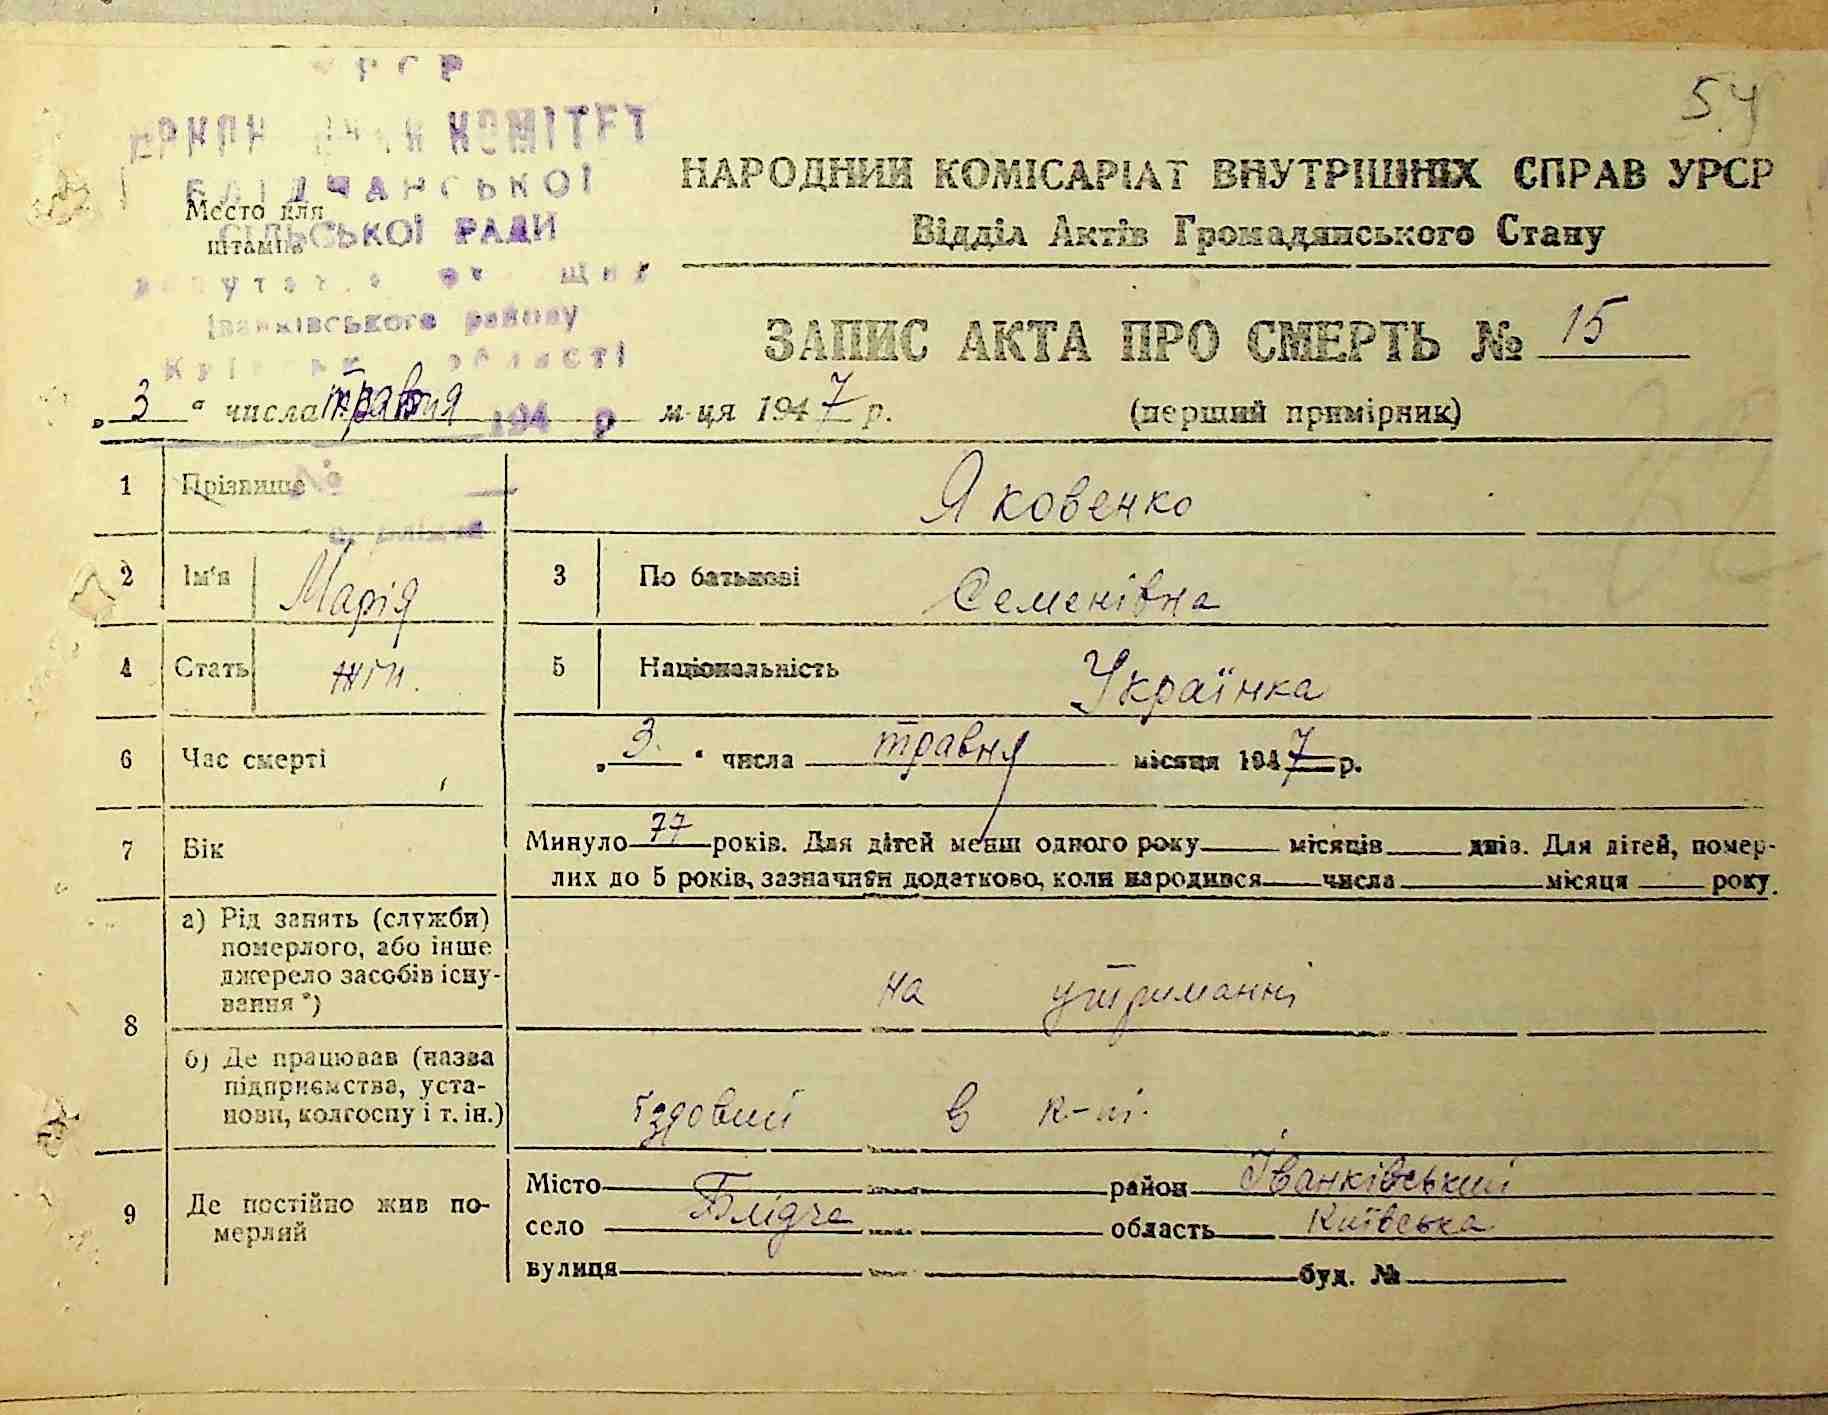 УРСР
54
КОМІТЕТ
БЛІДЧАНСЬКОЇ
Место для
штампа
СІЛЬСЬКОЇ РАДИ
Іванківського району
області
НАРОДНИЙ КОМІСАРІАТ ВНУТРІШНІХ СПРАВ УРСР
Відділ Актів Громадянського Стану
ЗАПИС АКТА ПРО СМЕРТЬ № 15
„ 3 “ числа травня м-ця 1947 р. (перший примірник)
194 р
№
1 Прізвище Яковенко
2 Ім'я Марія 3 По батькові Семенівна
4 Стать жін. 5 Національність Українка
6 Час смерті „ 3. “ числа травня місяця 1947 р.
7 Вік Минуло 77 років. Для дітей менш одного року місяців днів. Для дітей, помер-
лих до 5 років, зазначити додатково, коли народився числа місяця року.
8 а) Рід занять (служби)
померлого, або інше
джерело засобів існу-
вання *)
на утриманні
б) Де працював (назва
підприємства, уста-
нови, колгоспу і т. ін.)
в к-пі.
9 Де постійно жив по-
мерлий
Місто район Іванківський
село Блідча область Київська
вулиця буд. №